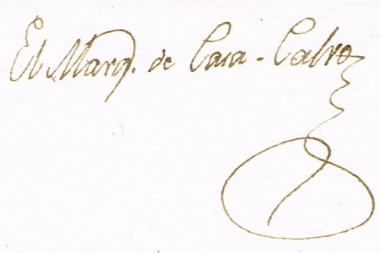 El Marq. de Casa-Calvo